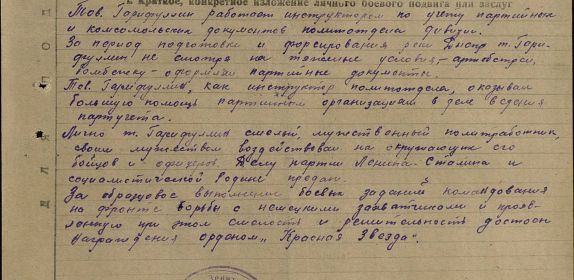 1. Краткое, конкретное изложение личного боевого подвига или заслуг
Тов. Гарифуллин работает инструктором по учету партийных
и комсомольских документов политотдела дивизии.
За период подготовки и форсирования реки Днепр т. Гари-
фуллин не смотря на тяжелые условия – артобстрел,
бомбежку – оформлял партийные документы.
Тов. Гарифуллин, как инструктор политотдела, оказывал
большую помощь партийным организациям в деле ведения
партучета.
Лично т. Гарифуллин смелый, мужественный политработник,
своим мужеством воздействовал на окружающих его
бойцов и офицеров. Делу партии Ленина–Сталина и
социалистической Родине предан.
За образцовое выполнение боевых заданий командования
на фронте борьбы с немецкими захватчиками и прояв-
ленную при этом смелость и решительность достоин
награждения орденом „Красная Звезда“.